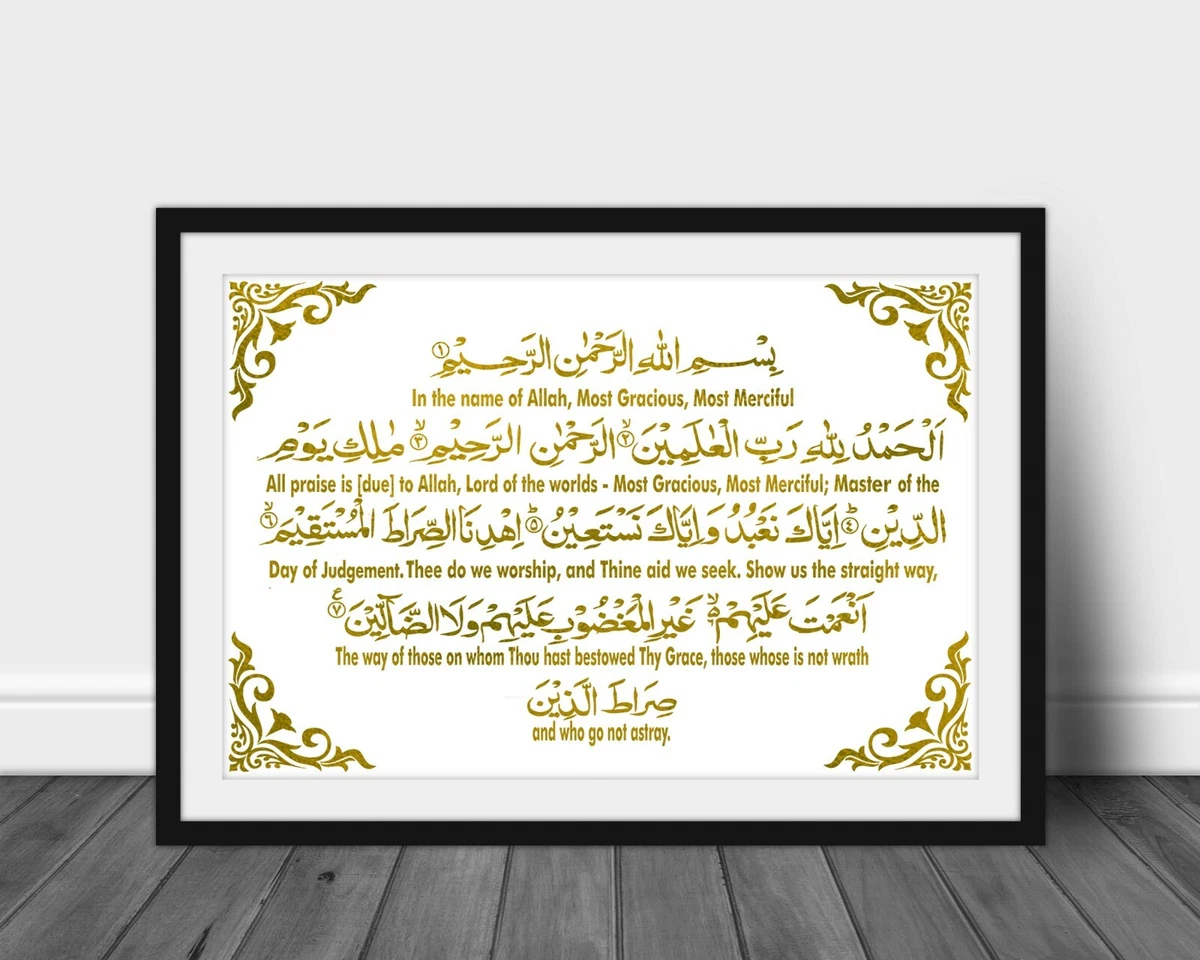 بِسْمِ اللهِ الرَّحْمٰنِ الرَّحِيْمِ ۝١
In the name of Allah, Most Gracious, Most Merciful
اَلْحَمْدُ لِلّٰهِ رَبِّ الْعٰلَمِيْنَ ۝٢ۙ الرَّحْمٰنِ الرَّحِيْمِ ۝٣ۙ مٰلِكِ يَوْمِ
All praise is [due] to Allah, Lord of the worlds - Most Gracious, Most Merciful; Master of the
الدِّيْنِ ۝٤ؕ اِيَّاكَ نَعْبُدُ وَاِيَّاكَ نَسْتَعِيْنُ ۝٥ؕ اِهْدِنَا الصِّرَاطَ الْمُسْتَقِيْمَ ۝٦ۙ
Day of Judgement. Thee do we worship, and Thine aid we seek. Show us the straight way,
اَنْعَمْتَ عَلَيْهِمْ ۙ۬ غَيْرِ الْمَغْضُوْبِ عَلَيْهِمْ وَلَا الضَّآلِّيْنَ ۝٧ع
The way of those on whom Thou hast bestowed Thy Grace, those whose is not wrath
صِرَاطَ الَّذِيْنَ
and who go not astray.